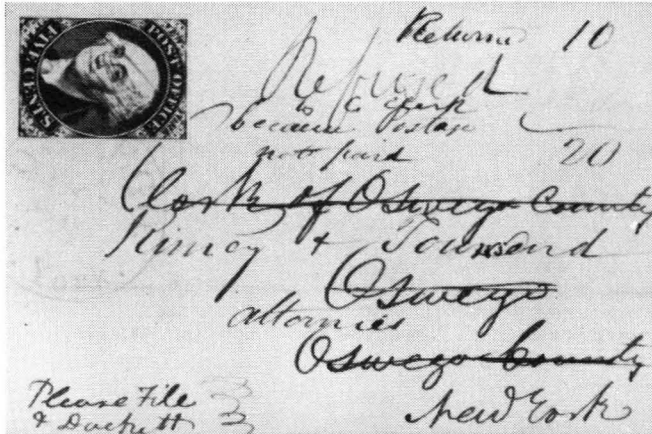 POST OFFICE
Returned 10
Refused
by Clerk
because Postage
not paid 20
Clerk of Oswego County
Kinney & Townsend
Oswego
attornies
Oswego County
New York
Please File
& Dockett